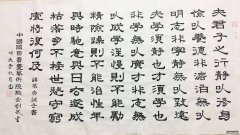 夫君子之行靜以修身
儉以養德非澹泊無以
明志非寧靜無以致遠
夫學須靜也才須學也
非學無以廣才非志無
以成學淫慢則不能勵
精險躁則不能治性年
與時馳意與日去遂成
枯落多不接世悲守窮
廬將復何及 諸葛亮誡子書
中國國際書畫藝術院